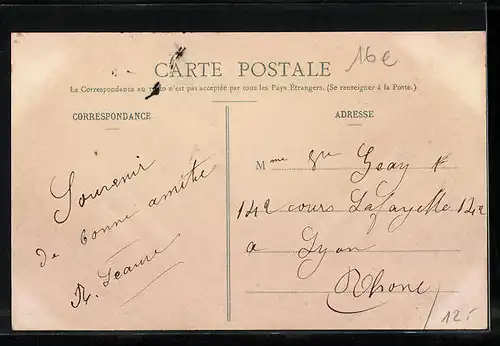 16e
CARTE POSTALE
La Correspondance au recto n'est pas acceptée par tous les Pays Étrangers. (Se renseigner à la Poste.)
CORRESPONDANCE
ADRESSE
Souvenir
de bonne amitié
R. Jeanne
Mme Vve Geay
142 cours Lafayette 142
a Lyon
Rhone
12.-